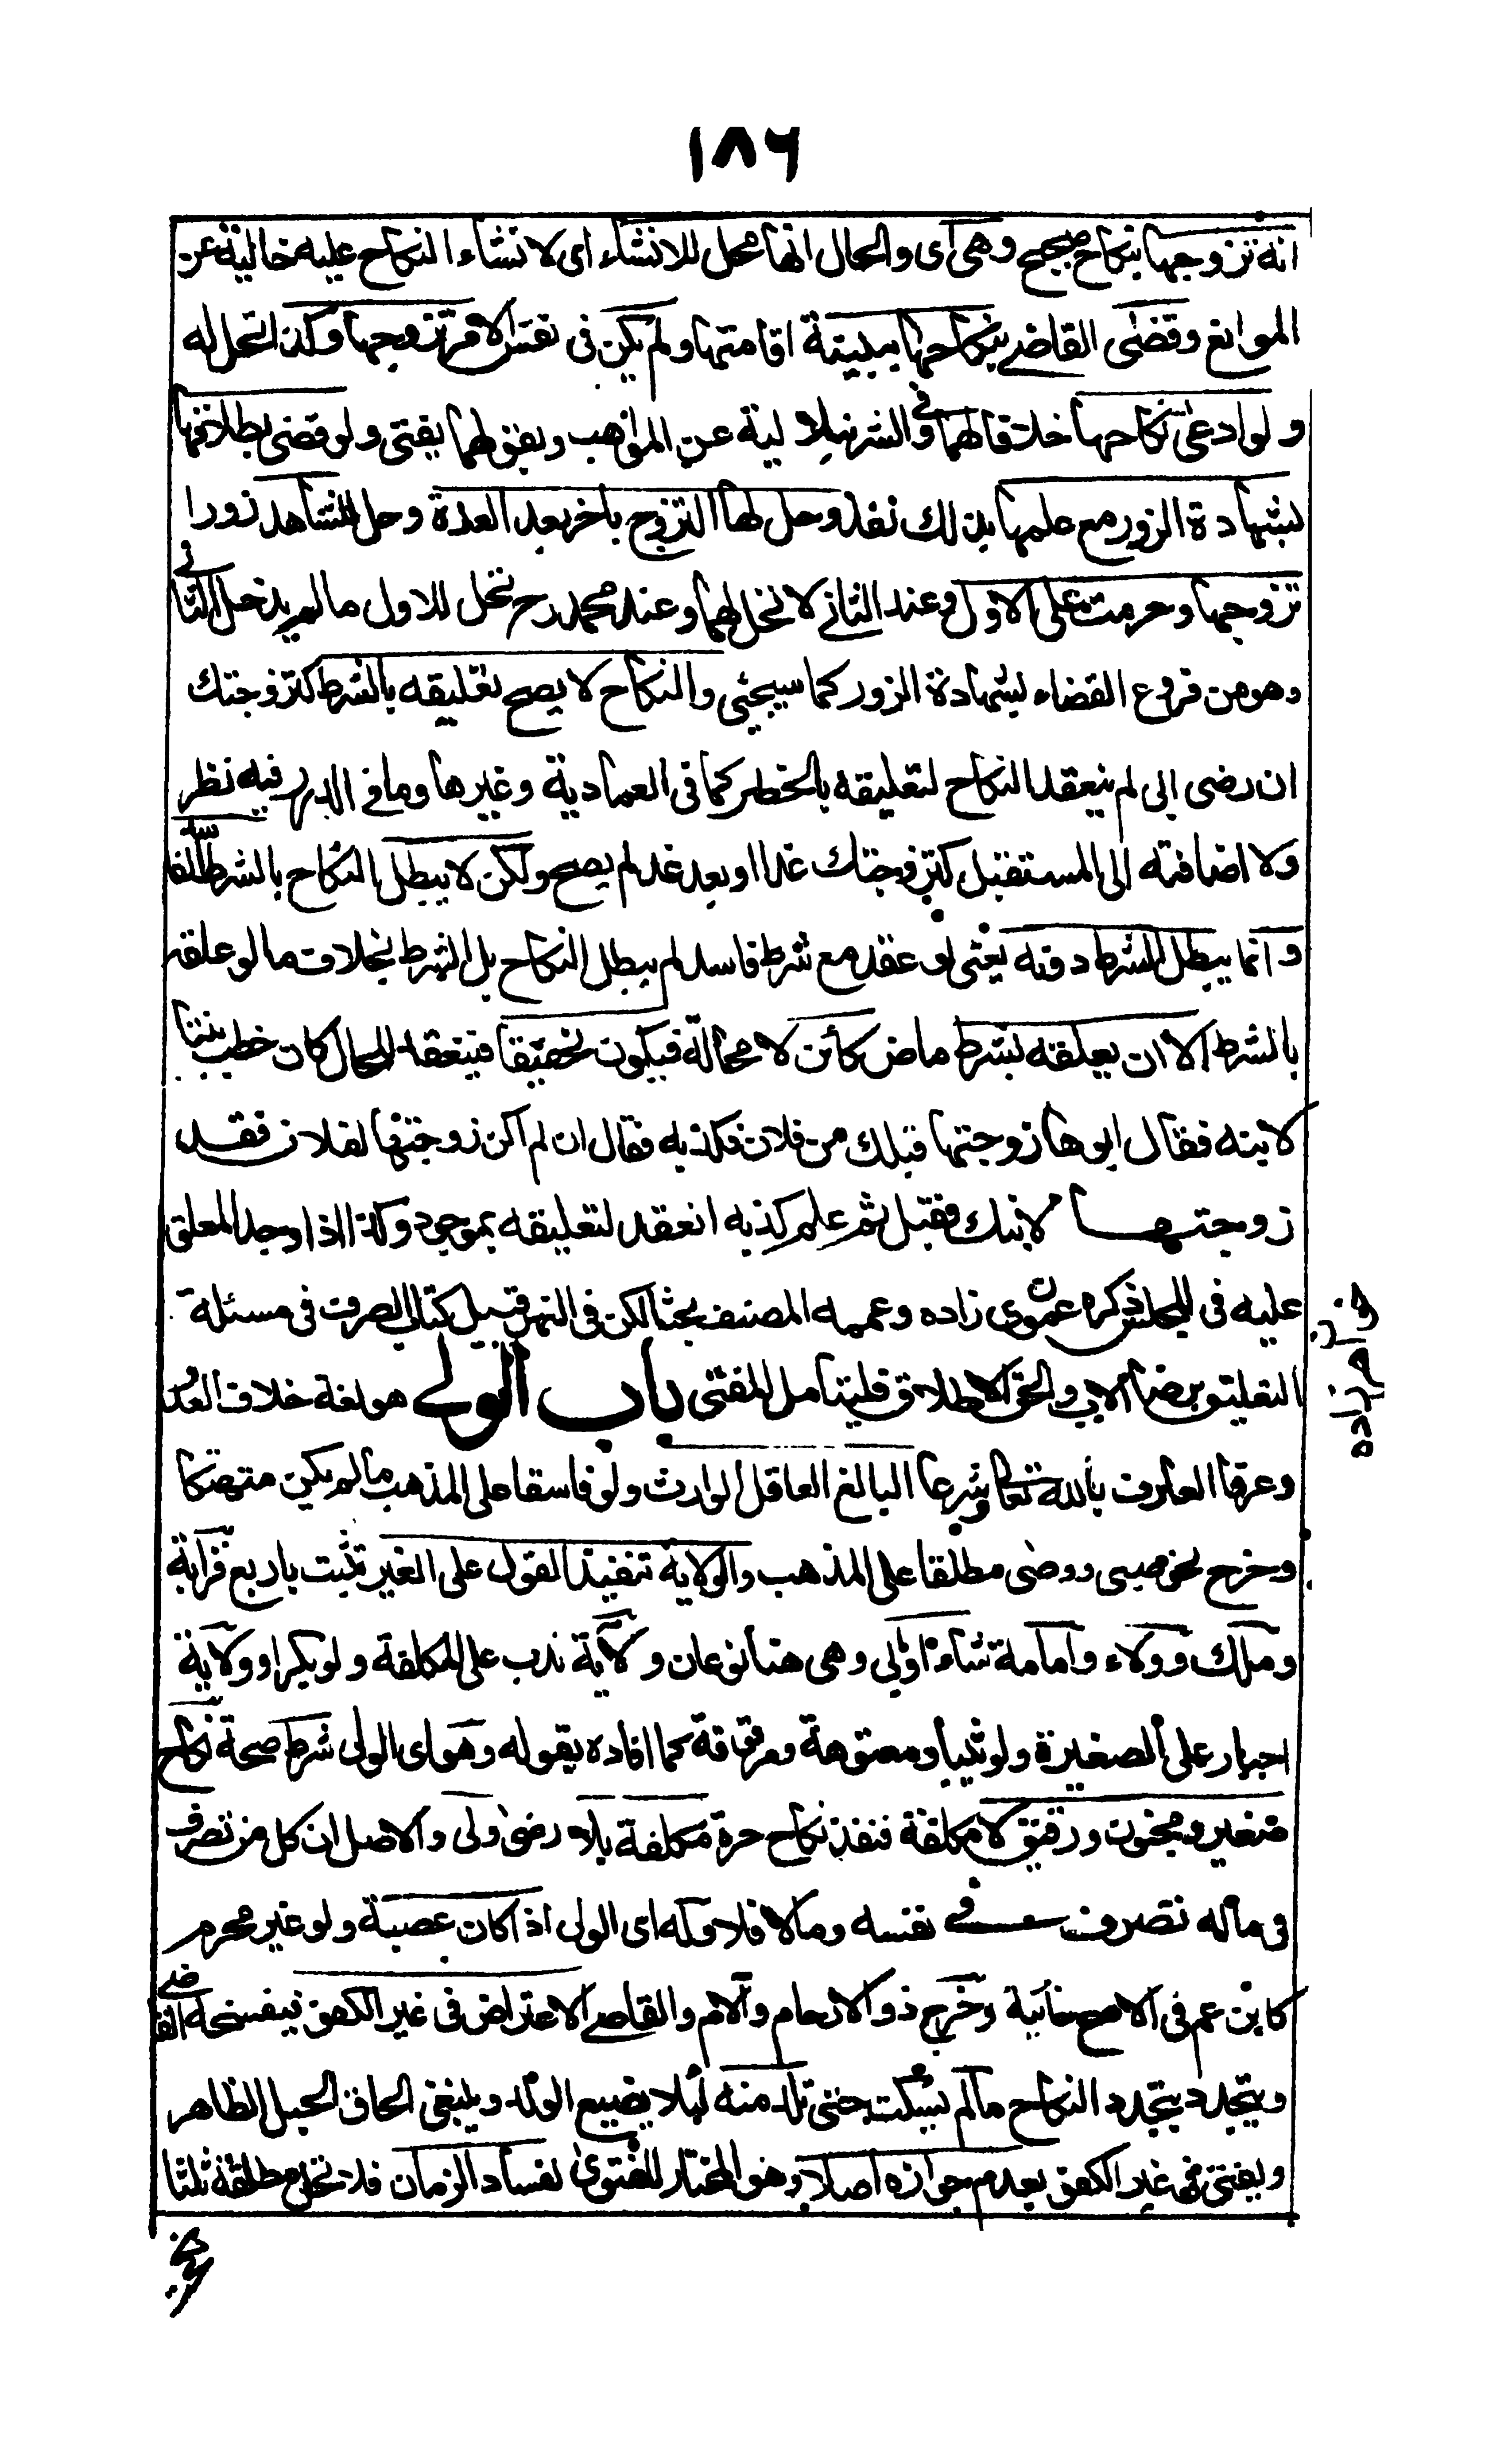 ١٨٦
انه تزوجها بنكاح صحيح وهى اى والحال انها محل للانشاء اى لانشاء النكاح عليه خالية عن
الموانع وقضى القاضى بنكاحها ببينة اقامتها ولم يكن فى نفس الامر تزوجها وكذا تحل له
ولو ادعى نكاحها خلافا لهما وفى الشرنبلالية عن المواهب وبقولهما يفتى ولو قضى بطلاقها
بشهادة الزور مع علمها بذلك نفذ وحل لها التزوج باخر بعد العدة وحل للشاهد زورا
تزوجها وحرمت على الاول وعند الثانى لا تحل لهما وعند محمد رح تحل للاول ما لم يدخل الثانى
وهو من فروع القضاء بشهادة الزور كما سيجئى والنكاح لا يصح تعليقه بالشرط كتزوجتك
ان رضى ابى لم ينعقد النكاح لتعليقه بالخطر كما فى العمادية وغيرها وما فى الدرر فيه نظر
ولا اضافته الى المستقبل كتزوجتك غدا او بعد غد لم يصح ولكن لا يبطل النكاح بالشرط الفاسد
وانما يبطل الشرط دونه يعنى لو عقد مع شرط فاسد لم يبطل النكاح بل الشرط بخلاف ما لو علقه
بالشرط الا ان يعلقه بشرط ماض كائن لا محالة فيكون تحقيقا فينعقد للحال كان خطب بنتا
لابنه فقال ابوها زوجتها قبلك من فلان فكذبه فقال ان لم اكن زوجتها لفلان فقد
زوجتها لابنك فقبل ثم علم كذبه انعقد لتعليقه بموجود وكذا اذا وجد المعلق
عليه فى المجلس ذكره عموى زاده وعممه المصنف بحثا لكن فى النهر قبيل كتاب الصرف فى مسئلة
التعليق برضا الاب والحق الاطلاق فليتامل المفتى باب الولى هو لغة خلاف العدو
وعرفا العارف بالله تعالى وشرعا البالغ العاقل الوارث ولو فاسقا على المذهب ما لم يكن متهتكا
وخرج نحو صبى ووصى مطلقا على المذهب والولاية تنفيذ القول على الغير تثبت باربع قرابة
وملك وولاء وامامة شاء او ابى وهى هنا نوعان ولاية ندب على المكلفة ولو بكرا وولاية
اجبار على الصغيرة ولو ثيبا ومعتوهة ومرقوقة كما افاده بقوله وهو اى الولى شرط صحة نكاح
صغير ومجنون ورقيق لا مكلفة فنفذ نكاح حرة مكلفة بلا رضى ولى والاصل ان كل من تصرف
فى ماله تصرف فى نفسه وما لا فلا وله اى الولى اذا كان عصبة ولو غير محرم
كابن عم فى الاصح خانية وخرج ذوو الارحام والام والقاضى الاعتراض فى غير الكفو فيفسخه القاضى
ويتجدد بتجدد النكاح ما لم يسكت حتى تلد منه لئلا يضيع الولد وينبغى الحاق الحبل الظاهر
ويفتى فى غير الكفو بعدم جوازه اصلا وهو المختار للفتوى لفساد الزمان فلا تحل مطلقة ثلثا